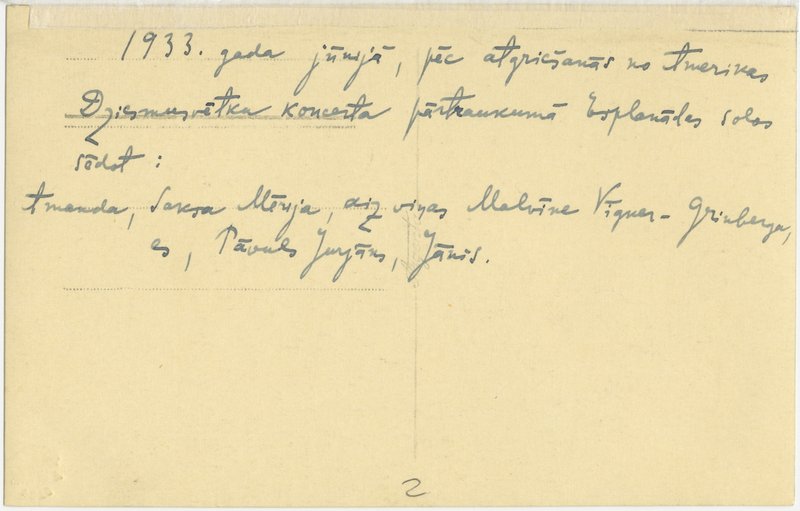 1933. gada jūnijā, pēc atgriešanās no Amerikas
Dziesmusvētku koncerta pārtraukumā Esplanādes solos
sēdot:
Amanda, Saksa Mērija, aiz viņas Malvīne Vīgner-Grinberga,
es, Pāvuls Jurjāns, Jānis.
2